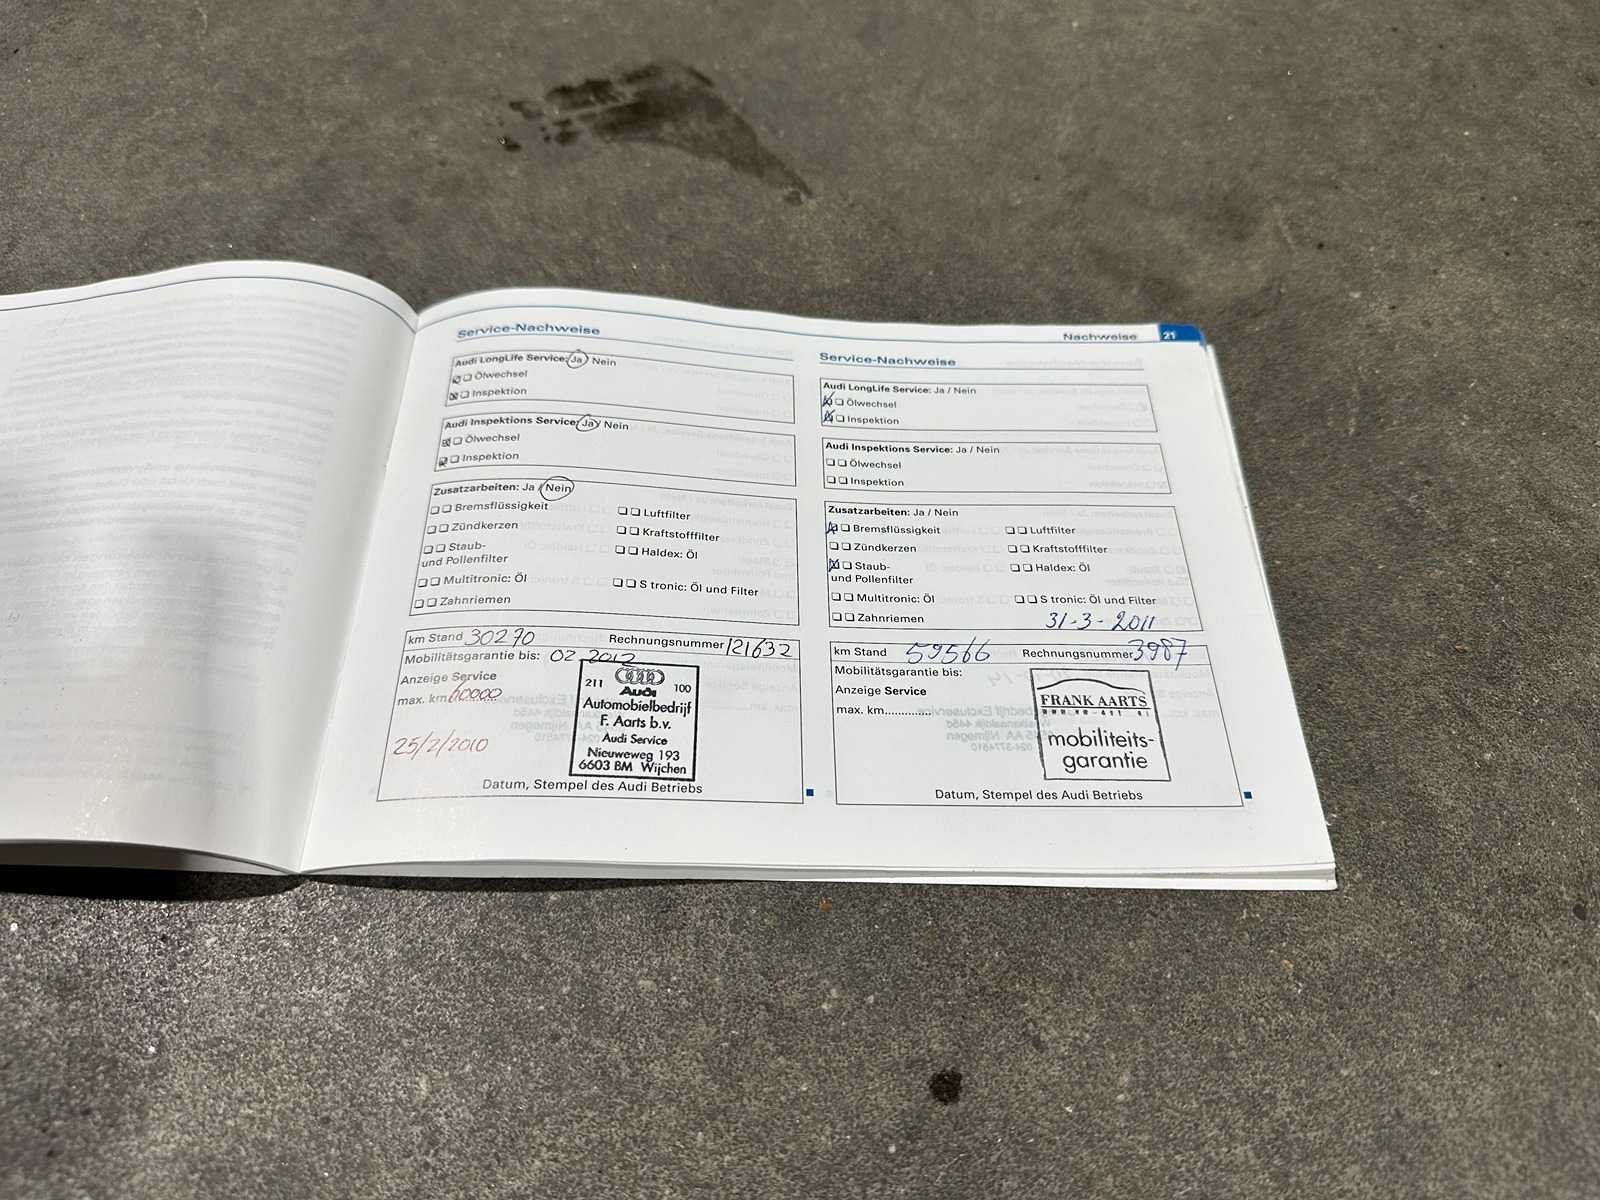 Service-Nachweise
Audi LongLife Service: Ja / Nein
Ölwechsel
Inspektion
Audi Inspektions Service: Ja / Nein
Ölwechsel
Inspektion
Zusatzarbeiten: Ja / Nein
Bremsflüssigkeit
Luftfilter
Zündkerzen
Kraftstofffilter
Staub-
und Pollenfilter
Haldex: Öl
Multitronic: Öl
S tronic: Öl und Filter
Zahnriemen
km Stand 30270 Rechnungsnummer 121632
Mobilitätsgarantie bis: 02 2012
Anzeige Service
max. km 60000
25/2/2010
211 100
Audi
Automobielbedrijf
F. Aarts b.v.
Audi Service
Nieuweweg 193
6603 BM Wijchen
Datum, Stempel des Audi Betriebs
Nachweise 21
Service-Nachweise
Audi LongLife Service: Ja / Nein
Ölwechsel
Inspektion
Audi Inspektions Service: Ja / Nein
Ölwechsel
Inspektion
Zusatzarbeiten: Ja / Nein
Bremsflüssigkeit
Luftfilter
Zündkerzen
Kraftstofffilter
Staub-
und Pollenfilter
Haldex: Öl
Multitronic: Öl
S tronic: Öl und Filter
Zahnriemen
31-3-2011
km Stand 59566 Rechnungsnummer 3987
Mobilitätsgarantie bis:
Anzeige Service
max. km..............
FRANK AARTS
mobiliteits-
garantie
Datum, Stempel des Audi Betriebs